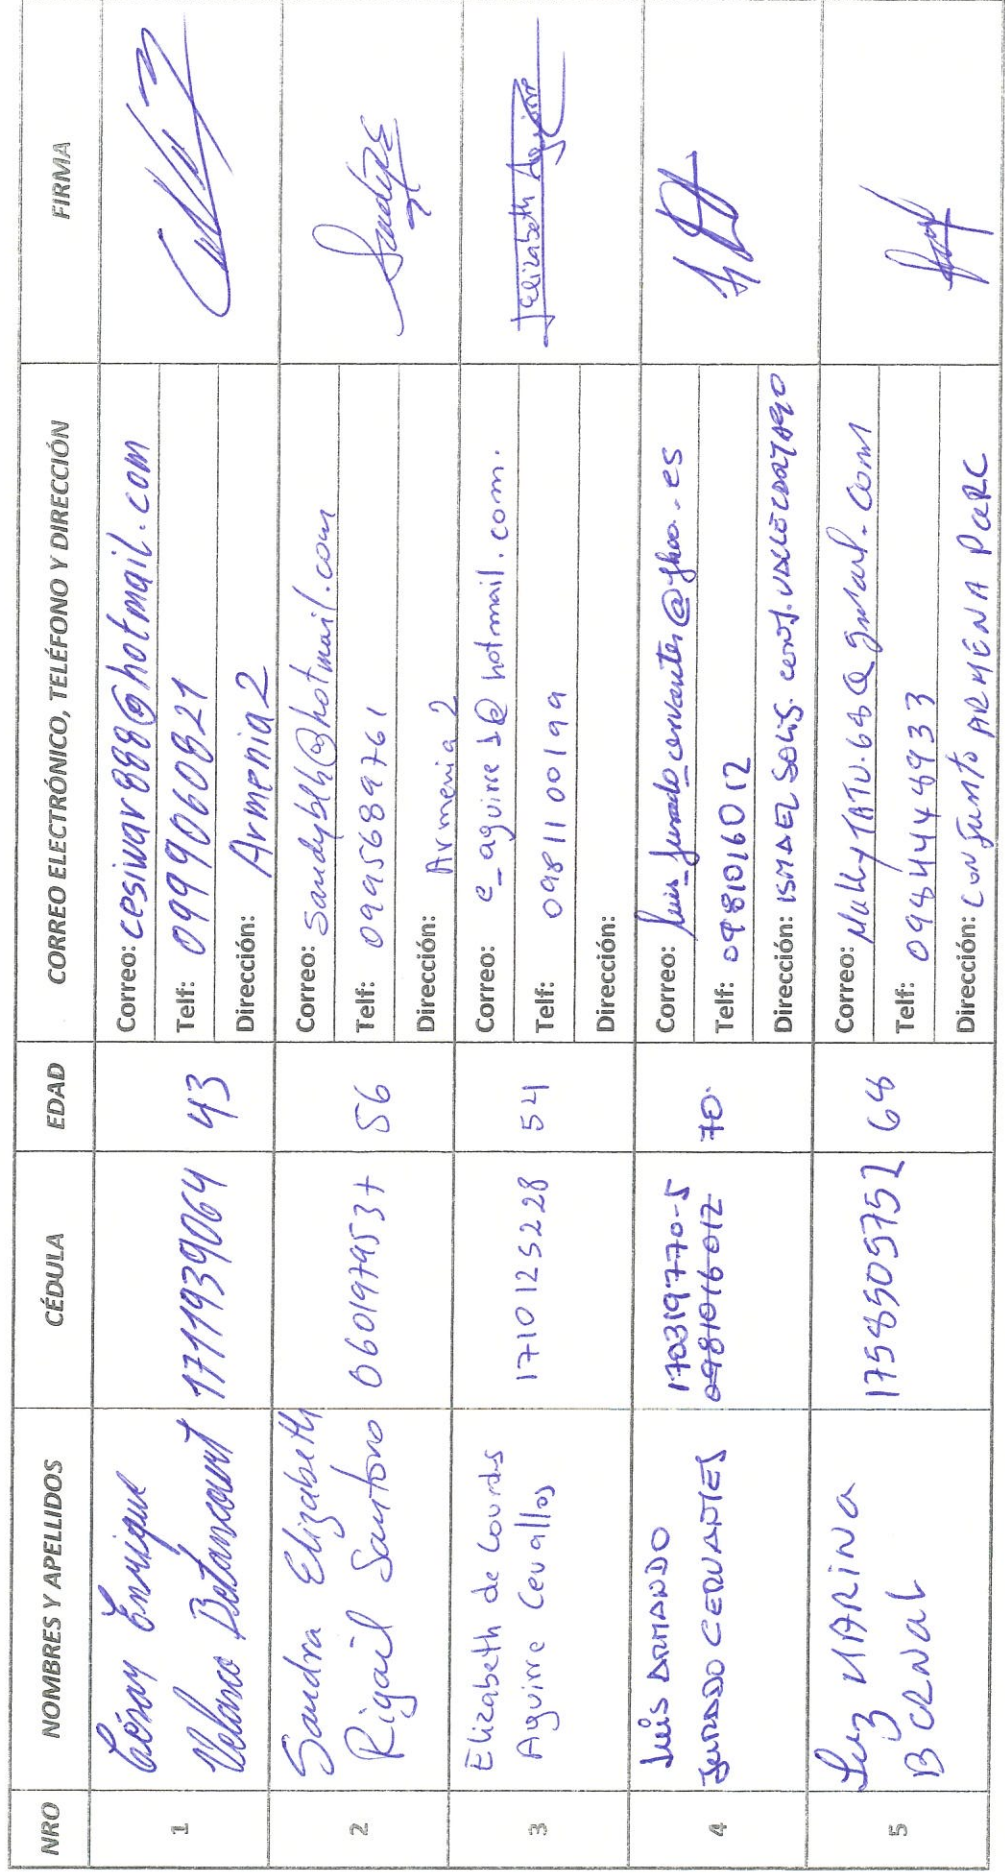 NRO NOMBRES Y APELLIDOS CÉDULA EDAD CORREO ELECTRÓNICO, TELÉFONO Y DIRECCIÓN FIRMA
1
César Enrique
Velasco Betancourt
1711939064
43
Correo: cesiwav888@hotmail.com
Telf: 0999060821
Dirección: Armenia 2
2
Sandra Elizabeth
Rigail Santoro
0601979537
56
Correo: sandyblh@hotmail.com
Telf: 0995689761
Dirección: Armenia 2
3
Elizabeth de Lourdes
Aguirre Cevallos
1710125228
54
Correo: e_aguirre1@hotmail.com.
Telf: 0981100199
Dirección:
Elizabeth Aguirre
4
Luis ARMANDO
JURADO CERVANTES
170319770-5
0981016012
70.
Correo: luis_jurado_cervantes@yahoo.es
Telf: 0981016012
Dirección: ISMAEL SOLIS. CONJ.
5
Luz MARINA
BERNAL
1758505752
68
Correo: @gmail.com
Telf: 0984448933
Dirección: CONJUNTO ARMENA PARC